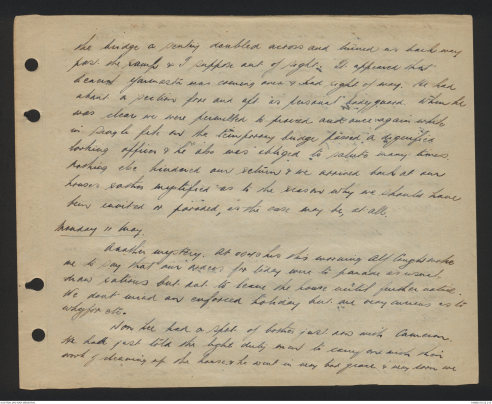 the bridge a sentry doubled across and turned us back way
past the ramp & I suppose out of sight. It appeared that
was coming over & had right of way. He had
about a section fore and aft as personal bodyguard. When he
was clear we were permitted to proceed and once again while
in single file on the temporary bridge passed a dignified
looking officer & he also was obliged to salute many times.
Nothing else hindered our return & we arrived back at our
houses rather mystified as to the reason why we should have
been invited or paraded, as the case may be, at all.
Monday 11 May.
Another mystery. At 0045 hrs this morning Alf woke
me to say that our orders for today were to parade as usual,
draw rations but not to leave the house until further notice.
We don't mind our enforced holiday but are very curious as to
whyfor etc.
Norm has had a spot of bother just now with Cameron.
He had just told the light duty men to carry on with their
work of cleaning up the house & he went in very bad grace & very soon we